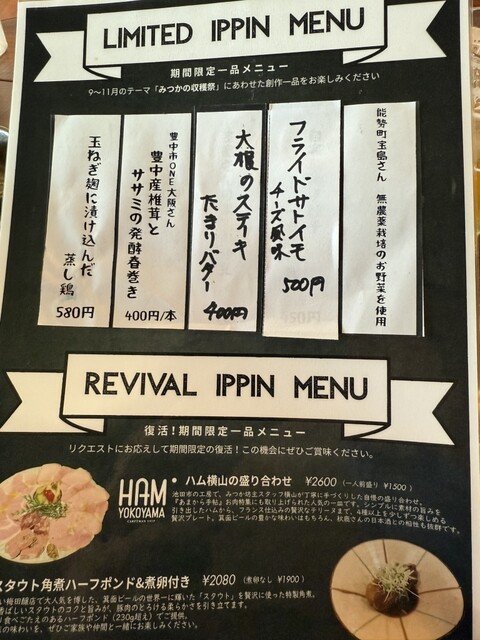 LIMITED IPPIN MENU
期間限定一品メニュー
9〜11月のテーマ「みつかの収穫祭」にあわせた創作一品をお楽しみください
能勢町宝島さん 無農薬栽培のお野菜を使用
フライドサトイモ
チーズ風味
500円
大根のステーキ
たまりバター
400円
豊中市ONE大阪さん
豊中産椎茸と
ササミの発酵春巻き
400円/本
玉ねぎ麹に漬け込んだ
蒸し鶏
580円
REVIVAL IPPIN MENU
復活！期間限定一品メニュー
リクエストにお応えして期間限定の復活！この機会にぜひご賞味ください。
HAM
YOKOYAMA
・ハム横山の盛り合わせ ¥2600（一人前盛り ¥1500）
池田市の工房で、みつか坊主スタッフ横山が丁寧に手づくりした自慢の盛り合わせ。
『あまから手帖』お肉特集にも取り上げられた人気の一品です。シンプルに素材の旨みを
引き出したハムから、フランス仕込みの贅沢なテリーヌまで、4種以上を少しずつ楽しめる
贅沢プレート。箕面ビールの豊かな味わいはもちろん、秋鹿さんの日本酒との相性も抜群です。
スタウト角煮ハーフポンド&煮卵付き ¥2080（煮卵なし ¥1900）
い梅田醸店で大人気を博した、箕面ビールの世界一に輝いた「スタウト」を贅沢に使った特製角煮。
香ばしいスタウトのコクと旨みが、豚肉のとろける柔らかさを引き立てます。
り食べごたえのあるハーフポンド（230g超え）でご提供。
の味わいを、ぜひご家族や仲間と一緒にお楽しみください。